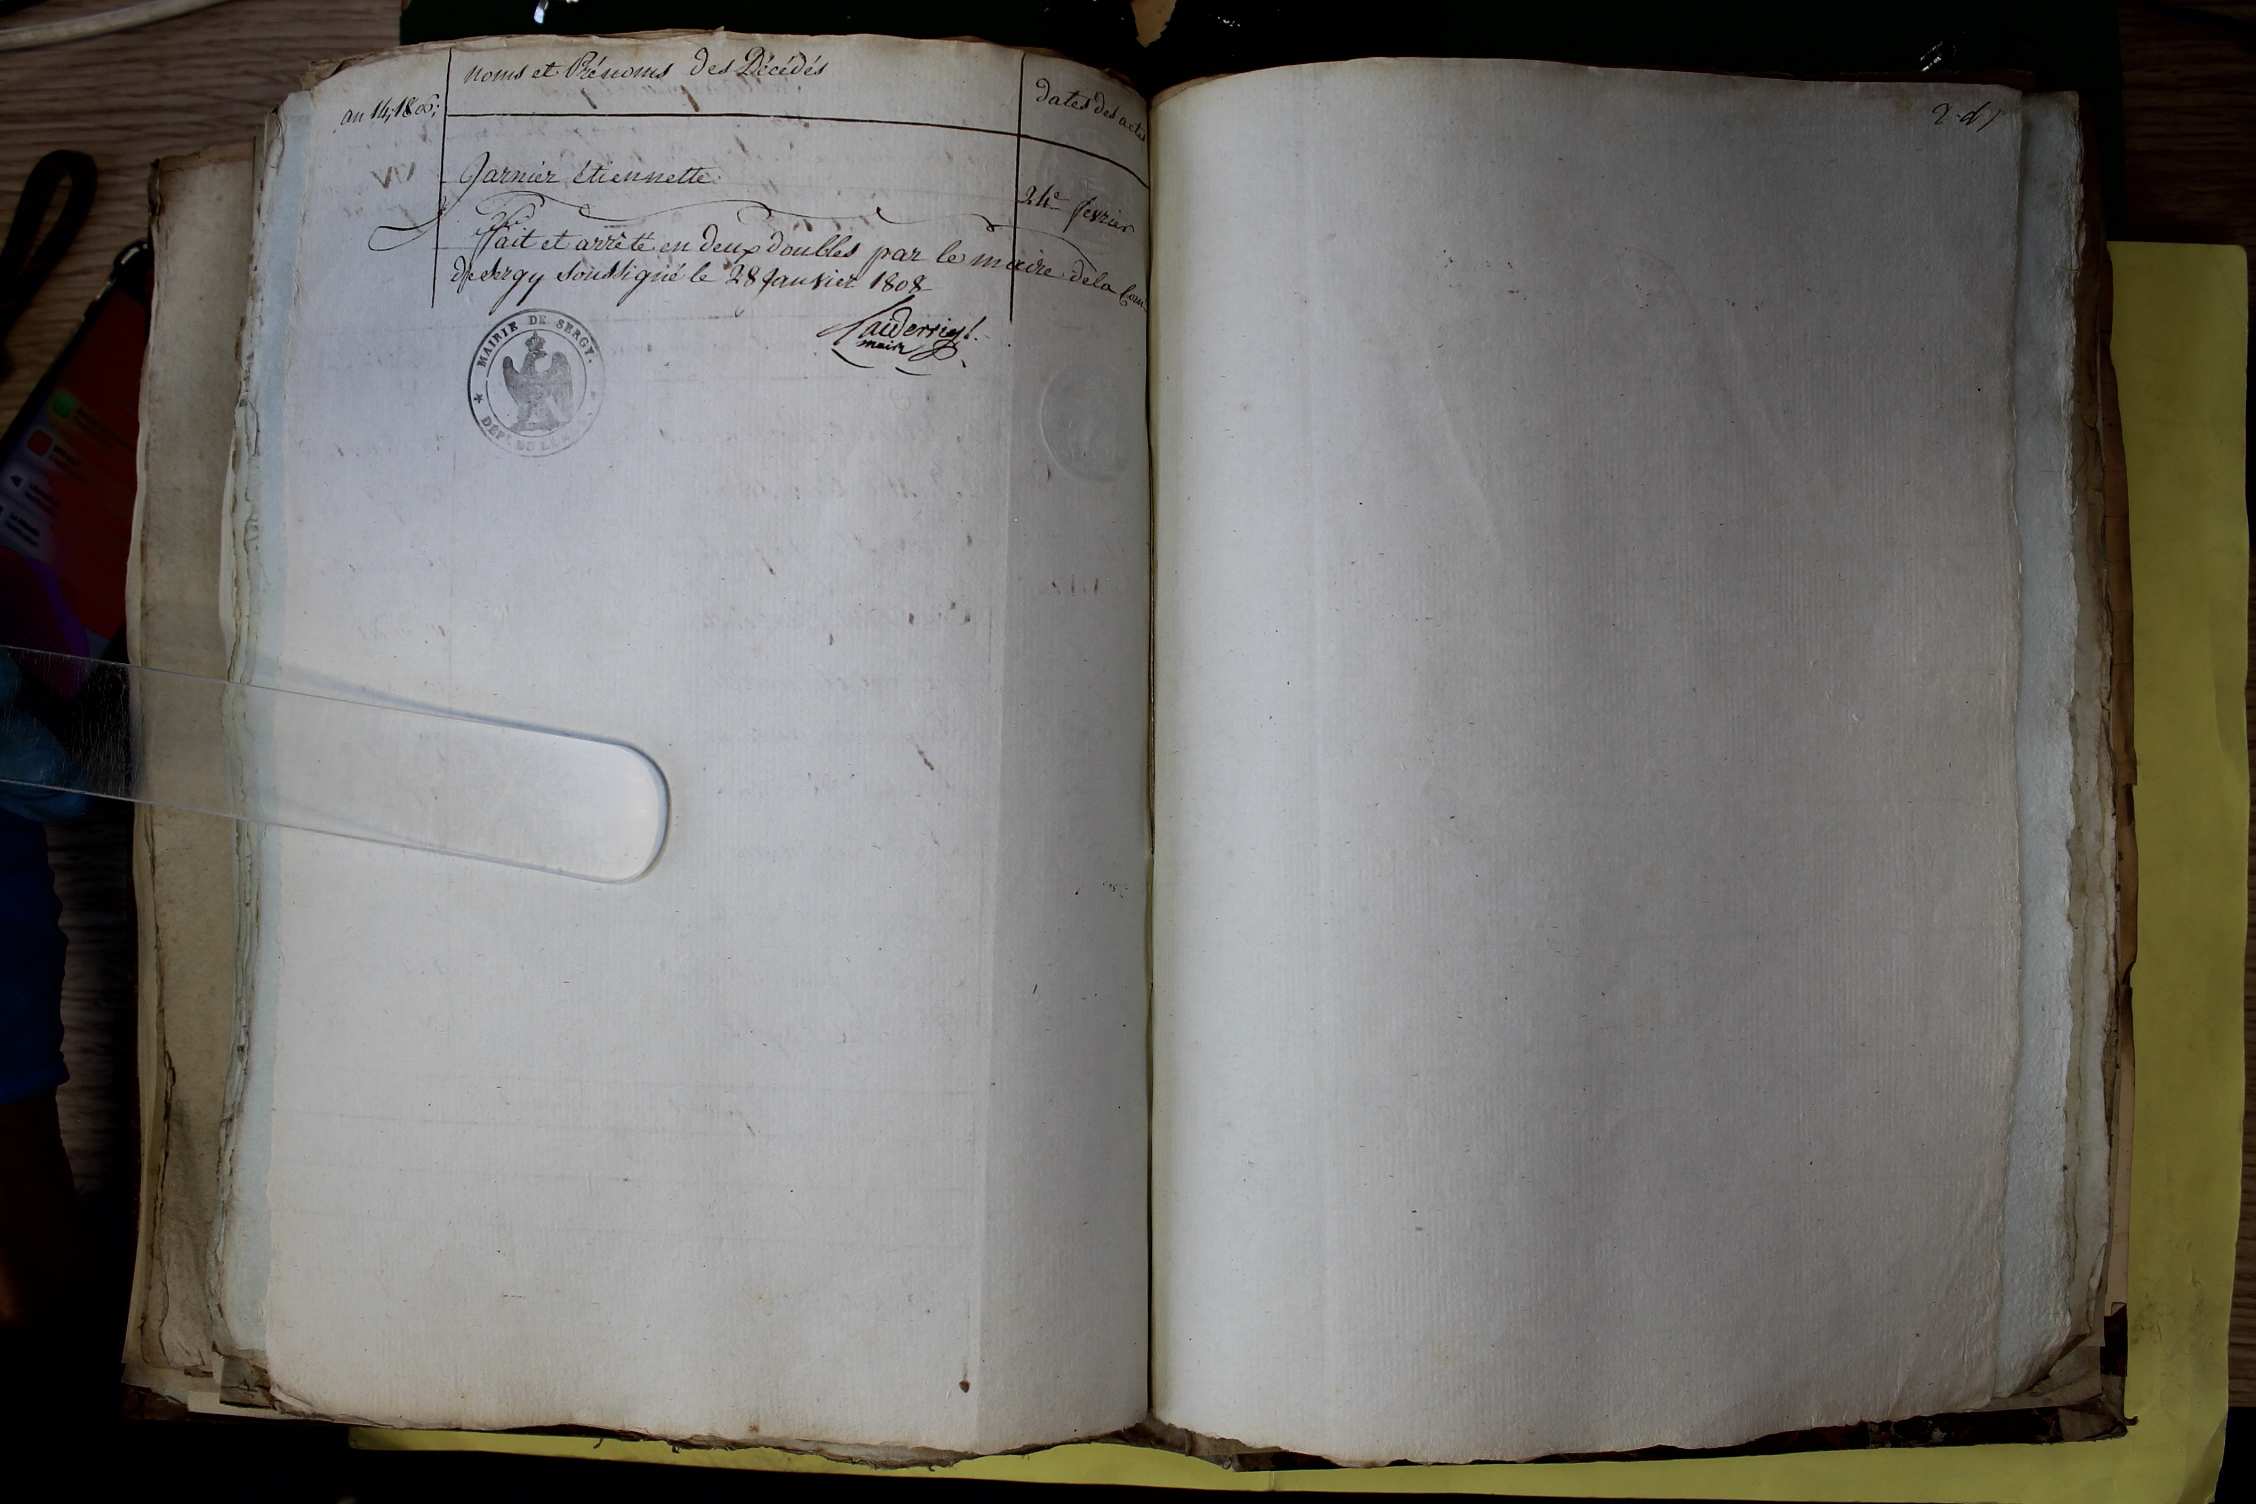 noms et Prénoms des Décédés
dates des actes
an 14, 1806;
Jarnier étiennette
24e fevrier
Fait et arrêté en deux doubles par le maire de la Com
de Sergy soussigné le 28 Janvier 1808
maire
MAIRIE DE SERGY.
DÉPT. DU LÉMAN